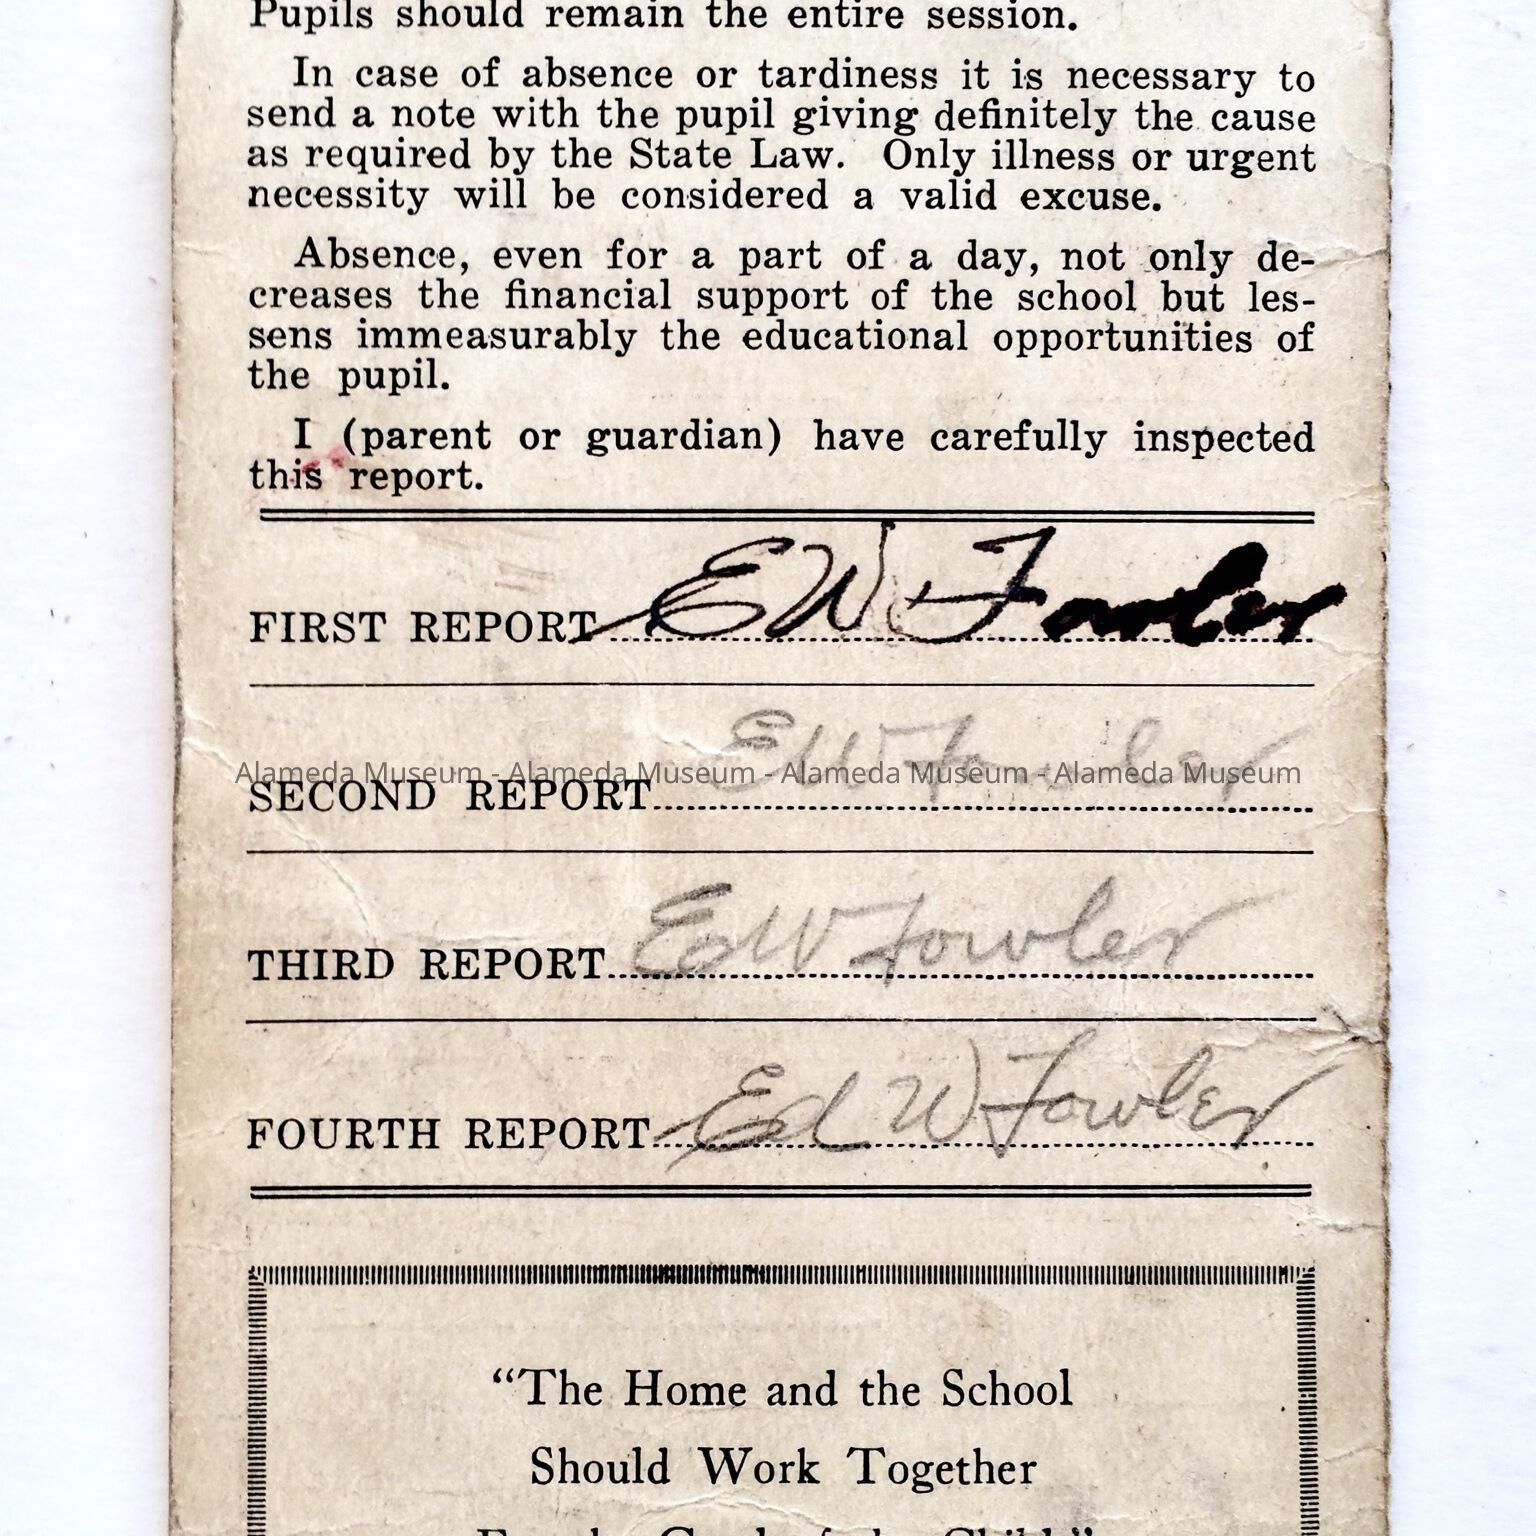 Pupils should remain the entire session.
In case of absence or tardiness it is necessary to
send a note with the pupil giving definitely the cause
as required by the State Law. Only illness or urgent
necessity will be considered a valid excuse.
Absence, even for a part of a day, not only de-
creases the financial support of the school but les-
sens immeasurably the educational opportunities of
the pupil.
I (parent or guardian) have carefully inspected
this report.
FIRST REPORT E W Fowler
SECOND REPORT E W Fowler
Alameda Museum - Alameda Museum - Alameda Museum - Alameda Museum
THIRD REPORT Ed W Fowler
FOURTH REPORT Ed W Fowler
"The Home and the School
Should Work Together